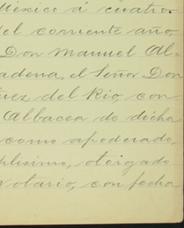 México á cuatro
del corriente año,
Don Manuel Al-
adena, el Señor Don
rez del Rio, con
Albacea de dicha
como apoderado,
plísimo, otorgado
otario, con fecha